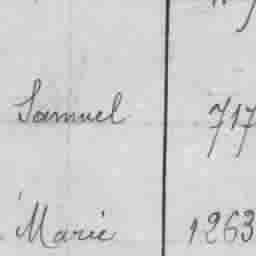 Samuel 717
Marie 1263